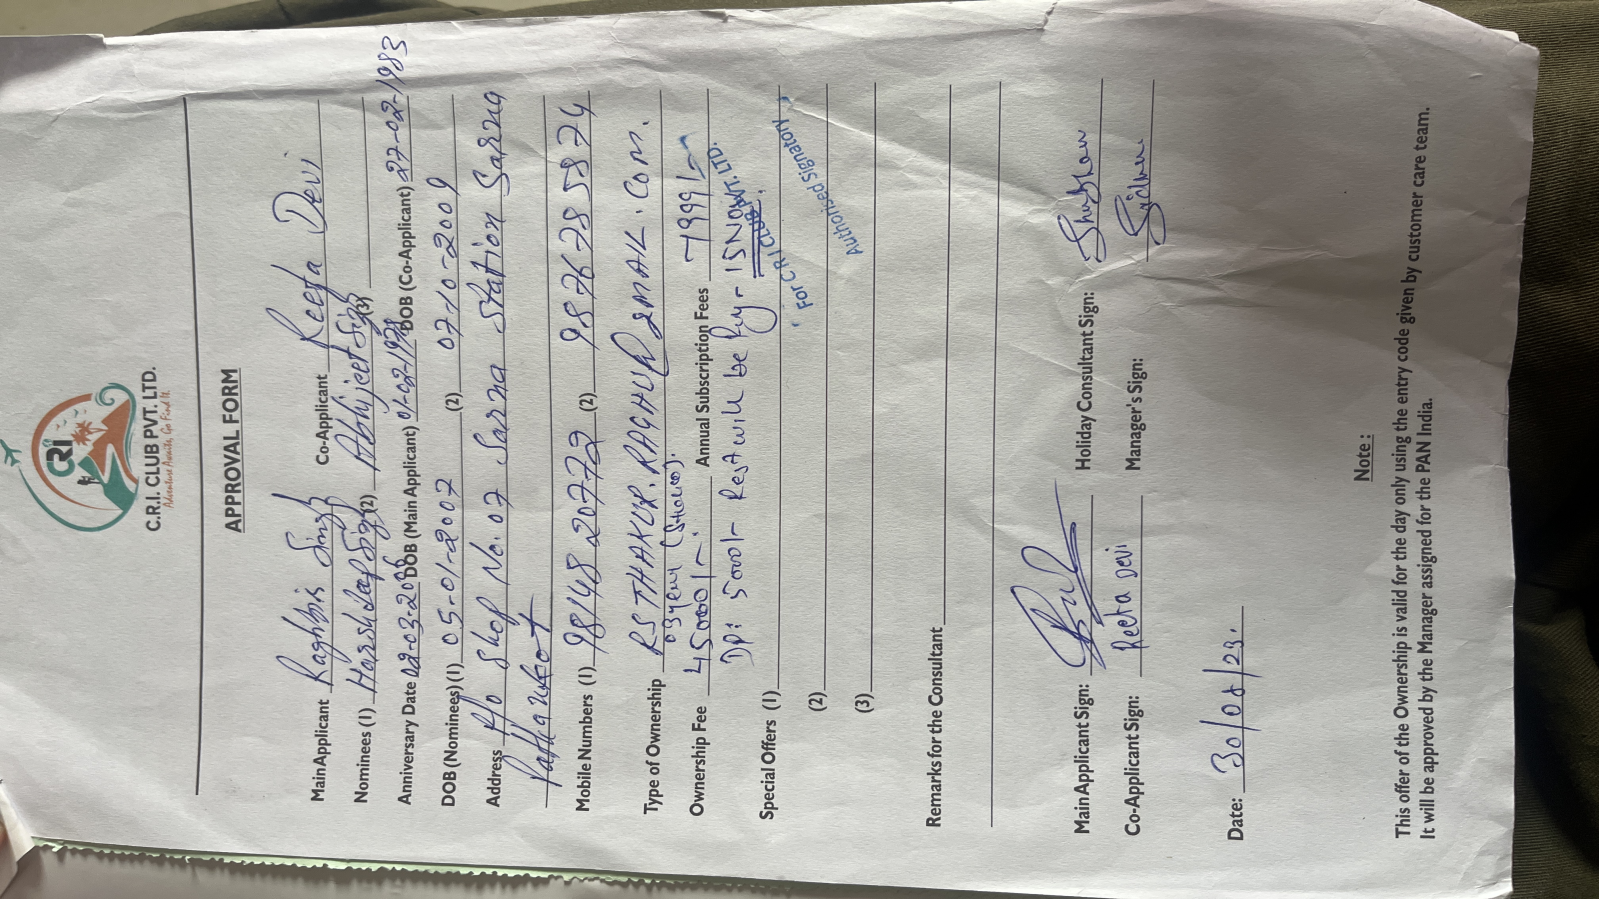 CRI
C.R.I. CLUB PVT. LTD.
Adventure Awaits, Go Find It.
APPROVAL FORM
Main Applicant Raghbir Singh Co-Applicant Reeta Devi
Nominees (1) Harshdeep Singh (2) Abhijeet Singh (3)
Anniversary Date 02-03- DOB (Main Applicant) 01-02-1978 DOB (Co-Applicant) 27-02-1983
DOB (Nominees) (1) 05-01-2007 (2) 07-10-2009
Address R/o Shop No. 07 Sarna Station Sarna
Pathankot
Mobile Numbers (1) 98148 20772 (2) 98767 85874
Type of Ownership RSTHAKUR.RAGHU@GMAIL.COM.
03 year (Studio).
Ownership Fee 45000/- Annual Subscription Fees 7999/-
DP: 5000/- Rest will be Pay - 15 NOV.
Special Offers (1)
For C R I CLUB PVT. LTD.
(2)
Authorised Signatory
(3)
Remarks for the Consultant
Main Applicant Sign: Holiday Consultant Sign: Shubham
Co-Applicant Sign: Reeta Devi Manager's Sign:
Date: 30/08/23.
Note :
This offer of the Ownership is valid for the day only using the entry code given by customer care team.
It will be approved by the Manager assigned for the PAN India.